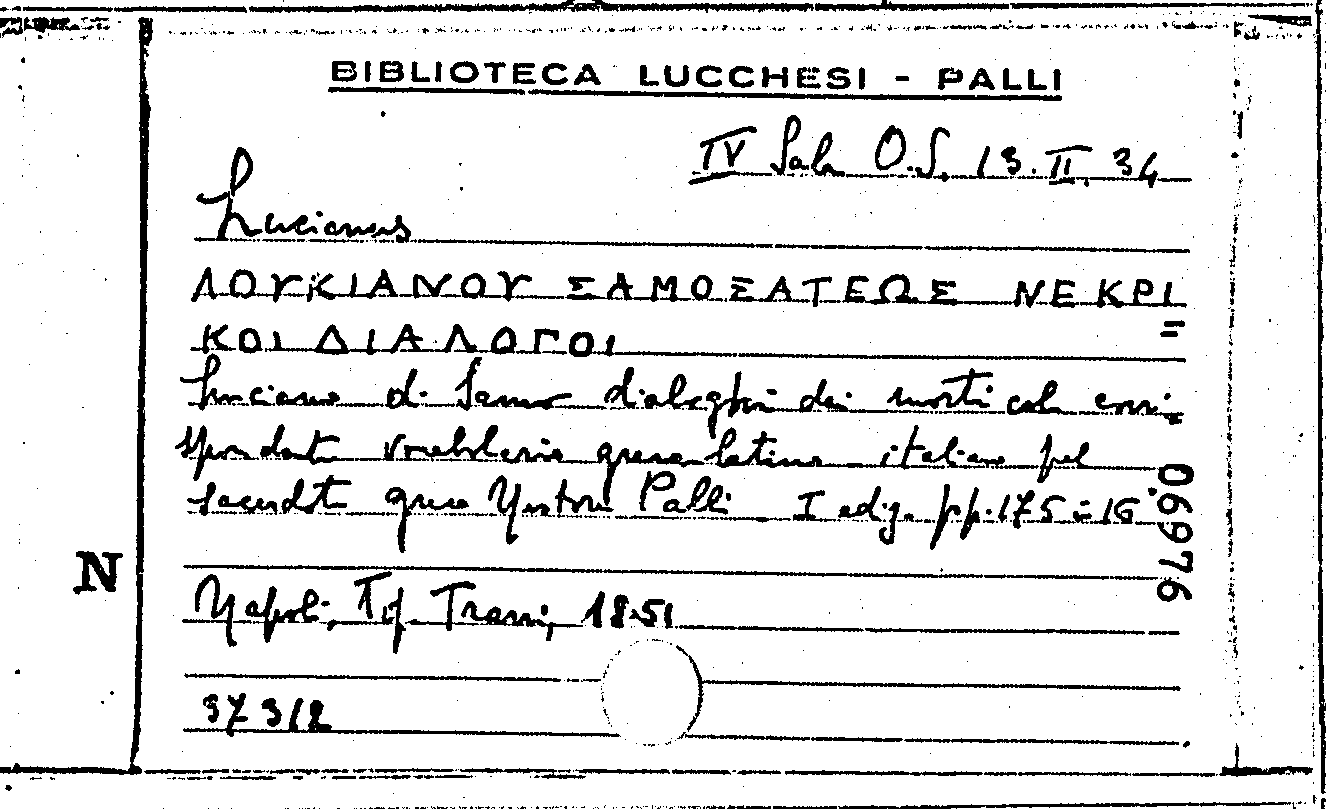 BIBLIOTECA LUCCHESI - PALLI
IV Sala O.S. 13. II. 34
Lucianus
ΛΟΥΚΙΑΝΟΥ ΣΑΜΟΣΑΤΕΩΣ ΝΕΚΡΙ=
ΚΟΙ ΔΙΑΛΟΓΟΙ
Luciano di Samo dialoghi dei morti col corri=
spondente vocabolario greco latino italiano pel
sacerdote greco Palli I ediz. pp. 175 in 16°
066976
N
Napoli, Tip. Trani, 1851
37312